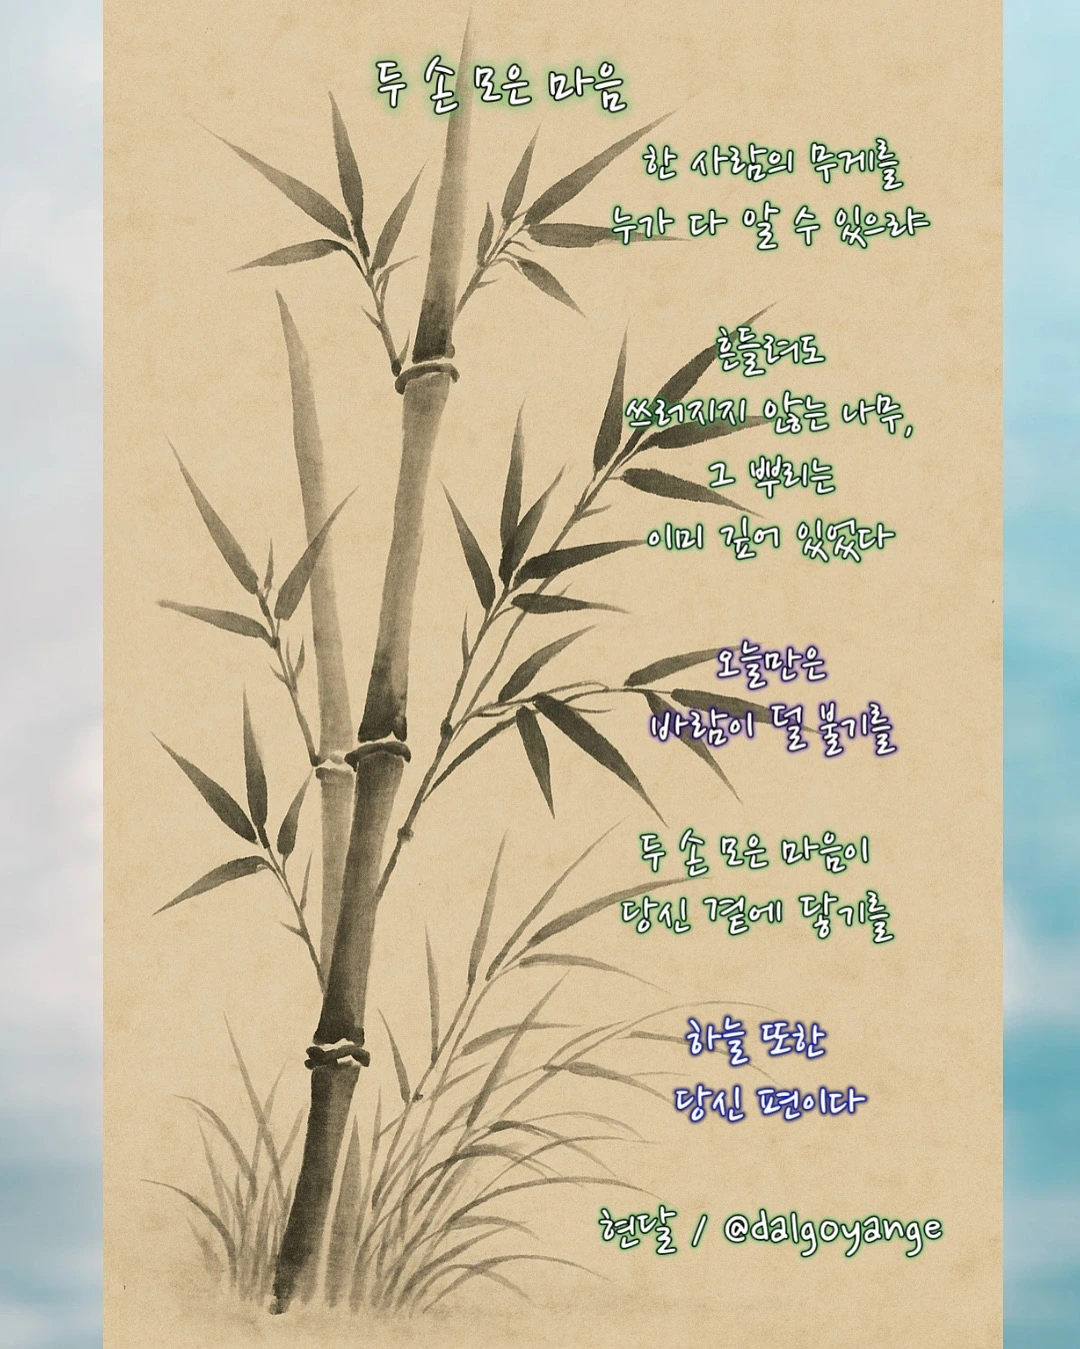 두 손 모은 마음
한 사람의 무게를
누가 다 알 수 있으랴
흔들려도
쓰러지지 않는 나무,
그 뿌리는
이미 깊어 있었다
오늘만은
바람이 덜 불기를
두 손 모은 마음이
당신 곁에 닿기를
하늘 또한
당신 편이다
현달 / @dalgoyange